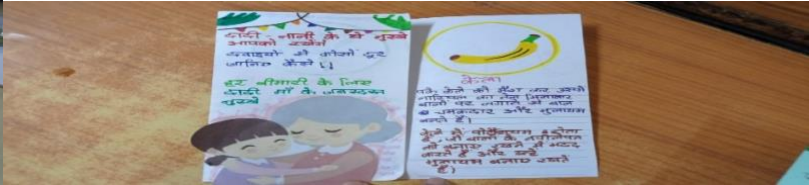 दादी-नानी के ये नुस्खे
आपको रखेंगे
दवाइयों से कोसों दूर
जानिए कैसे
हर बीमारी के लिए
दादी माँ के जबरदस्त
नुस्खे
केला
पके केले को मैश कर उसमें
नारियल का तेल मिलाकर
बालों पर लगाने से बाल
चमकदार और मुलायम
बनते हैं।
केले में पोटैशियम होता
है, जो बालों के
को बनाए रखने में मदद
करते हैं और उन्हें
मुलायम बनाए रखते
हैं।